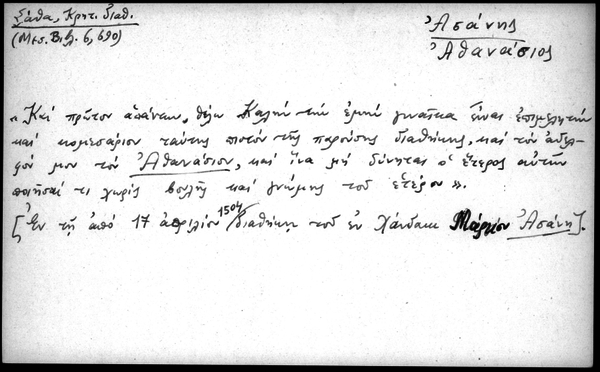 Σάθα, Κρητ. Διαθ.
(Μεσ. Βιβλ. 6, 690)
Ἀσάνης
Ἀθανάσιος
"Καὶ πρῶτον ἁπάντων, θέλω Καλὴν τὴν ἐμὴν γυναῖκα εἶναι ἐπιμελητὴν
καὶ κομεσάριον ταύτης πιστὸν τῆς παρούσης διαθήκης, καὶ τὸν ἀδελ-
φόν μου τὸν Ἀθανάσιον, καὶ ἵνα μὴ δύνηται ὁ ἕτερος αὐτῶν
ποιῆσαί τι χωρὶς βουλῆς καὶ γνώμης τοῦ ἑτέρου".
[Ἐν τῇ ἀπὸ 17 ἀπριλίου 1504 διαθήκῃ τοῦ ἐν Χάνδακι Μάρκου Ἀσάνη].